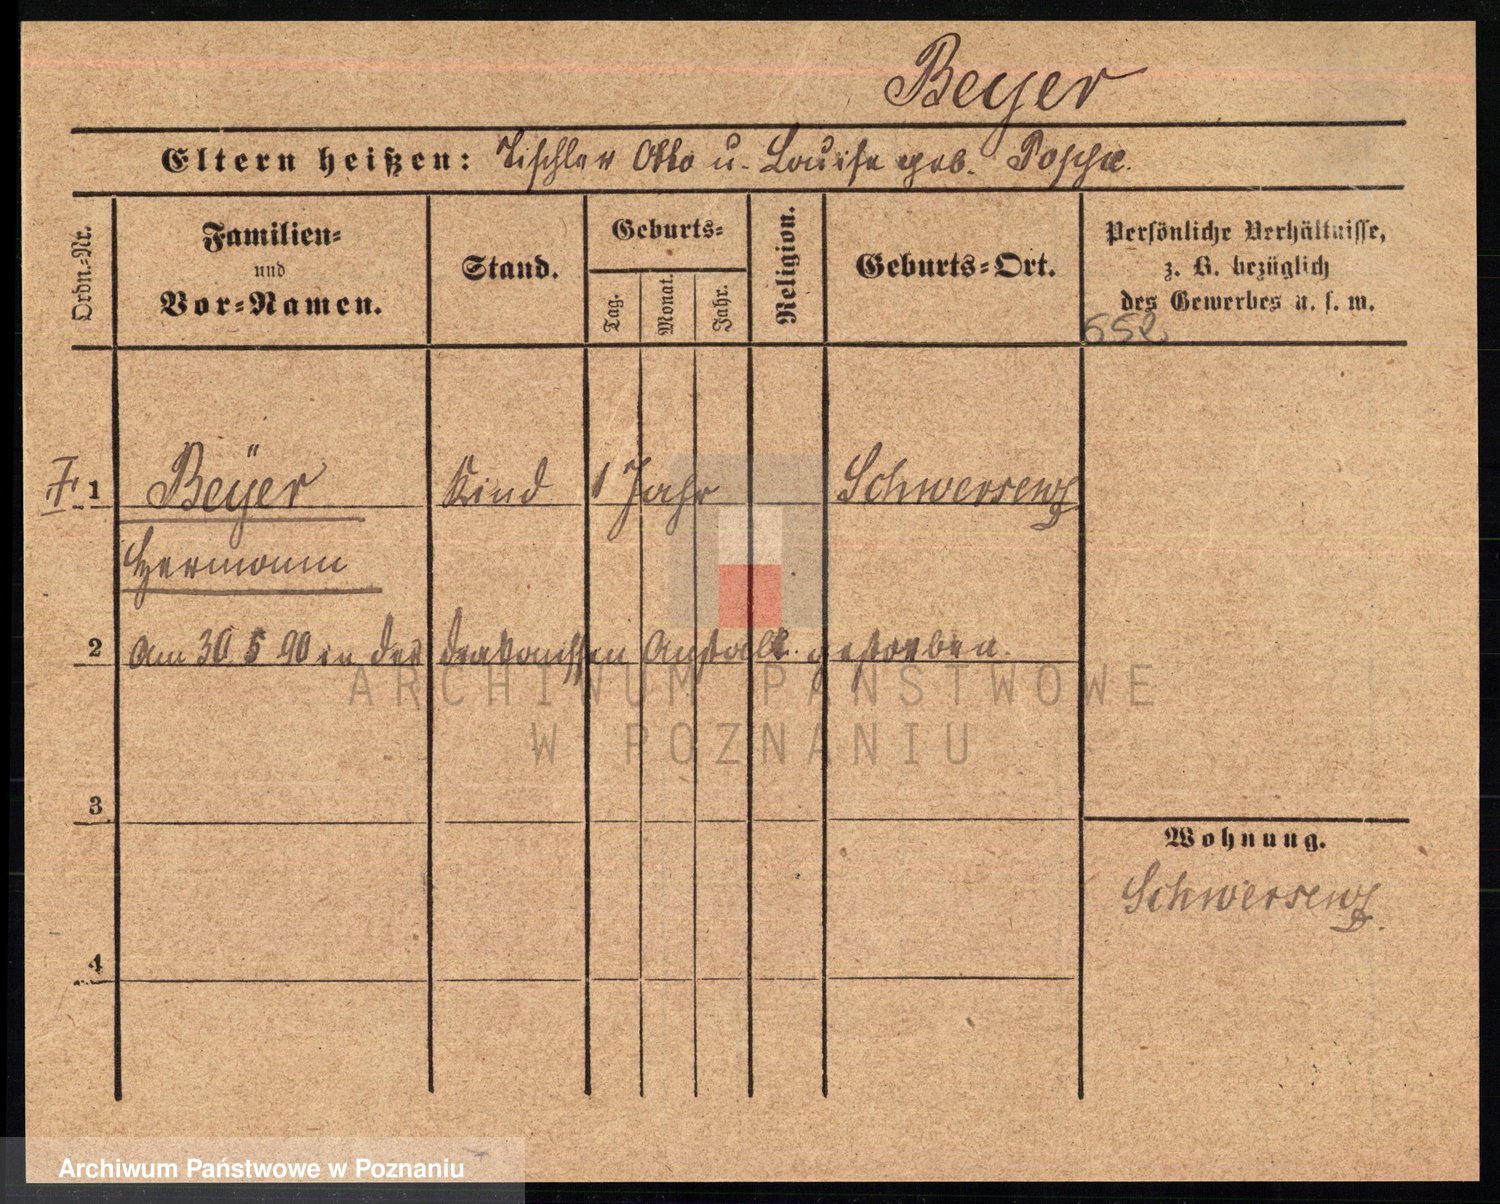 Beyer
Eltern heißen: Tischler Otto u. Louise geb.
Ordn.-Nr.
Familien-
und
Vor-Namen.
Stand.
Geburts-
Tag.
Monat.
Jahr.
Religion.
Geburts-Ort.
Persönliche Verhältnisse,
z. B. bezüglich
des Gewerbes u. s. w.
1 Beÿer Kind 1 Jahr Schwersenz
Hermann
2 Am 30 5 90 in der Anstalt gestorben.
3
Wohnung.
Schwersenz.
4
ARCHIWUM PAŃSTWOWE
W POZNANIU
Archiwum Państwowe w Poznaniu